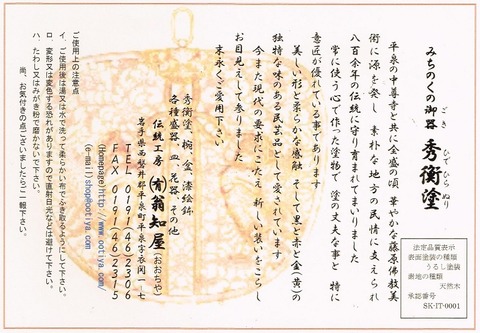 みちのくの御器 秀衡塗
ごき ひでひらぬり
平泉の中尊寺と共に全盛の頃 華やかな藤原佛教美
術に源を発し 素朴な地方の民情に支えられ
八百余年の伝統に守り育まれてまいりました
常に使う心で作った塗物で 塗の丈夫な事と 特に
意匠が優れている事であります
美しい形と柔らかな感触 そして黒と赤と金(黄)の
独特な味のある民芸品として愛されています
今また現代の要求にこたえ 新しい装いをこらし
お目見えして参りました
末永くご愛用下さい
秀衡塗、椀、盆、漆絵錦、
各種盛器、皿、花器、その他
伝統工房 (有)翁知屋(おおちや)
岩手県西磐井郡平泉町平泉字衣関一ー七
TEL 0191(46)2306
FAX 0191(46)2315
(Homepage)http://www.ootiya.com/
(e-mail)shop@ootiya.com
ご使用上の注意点
イ、ご使用後は湯又は水で洗って柔らかい布でふき取るようにして下さい。
ロ、変形又は変色する恐れがありますので直射日光などは避けて下さい。
ハ、たわし又はみがき粉で磨かないで下さい。
尚、お気付きの点ございましたらご一報下さい。
法定品質表示
表面塗装の種類
うるし塗装
素地の種類
天然木
承認番号
SK-IT-0001